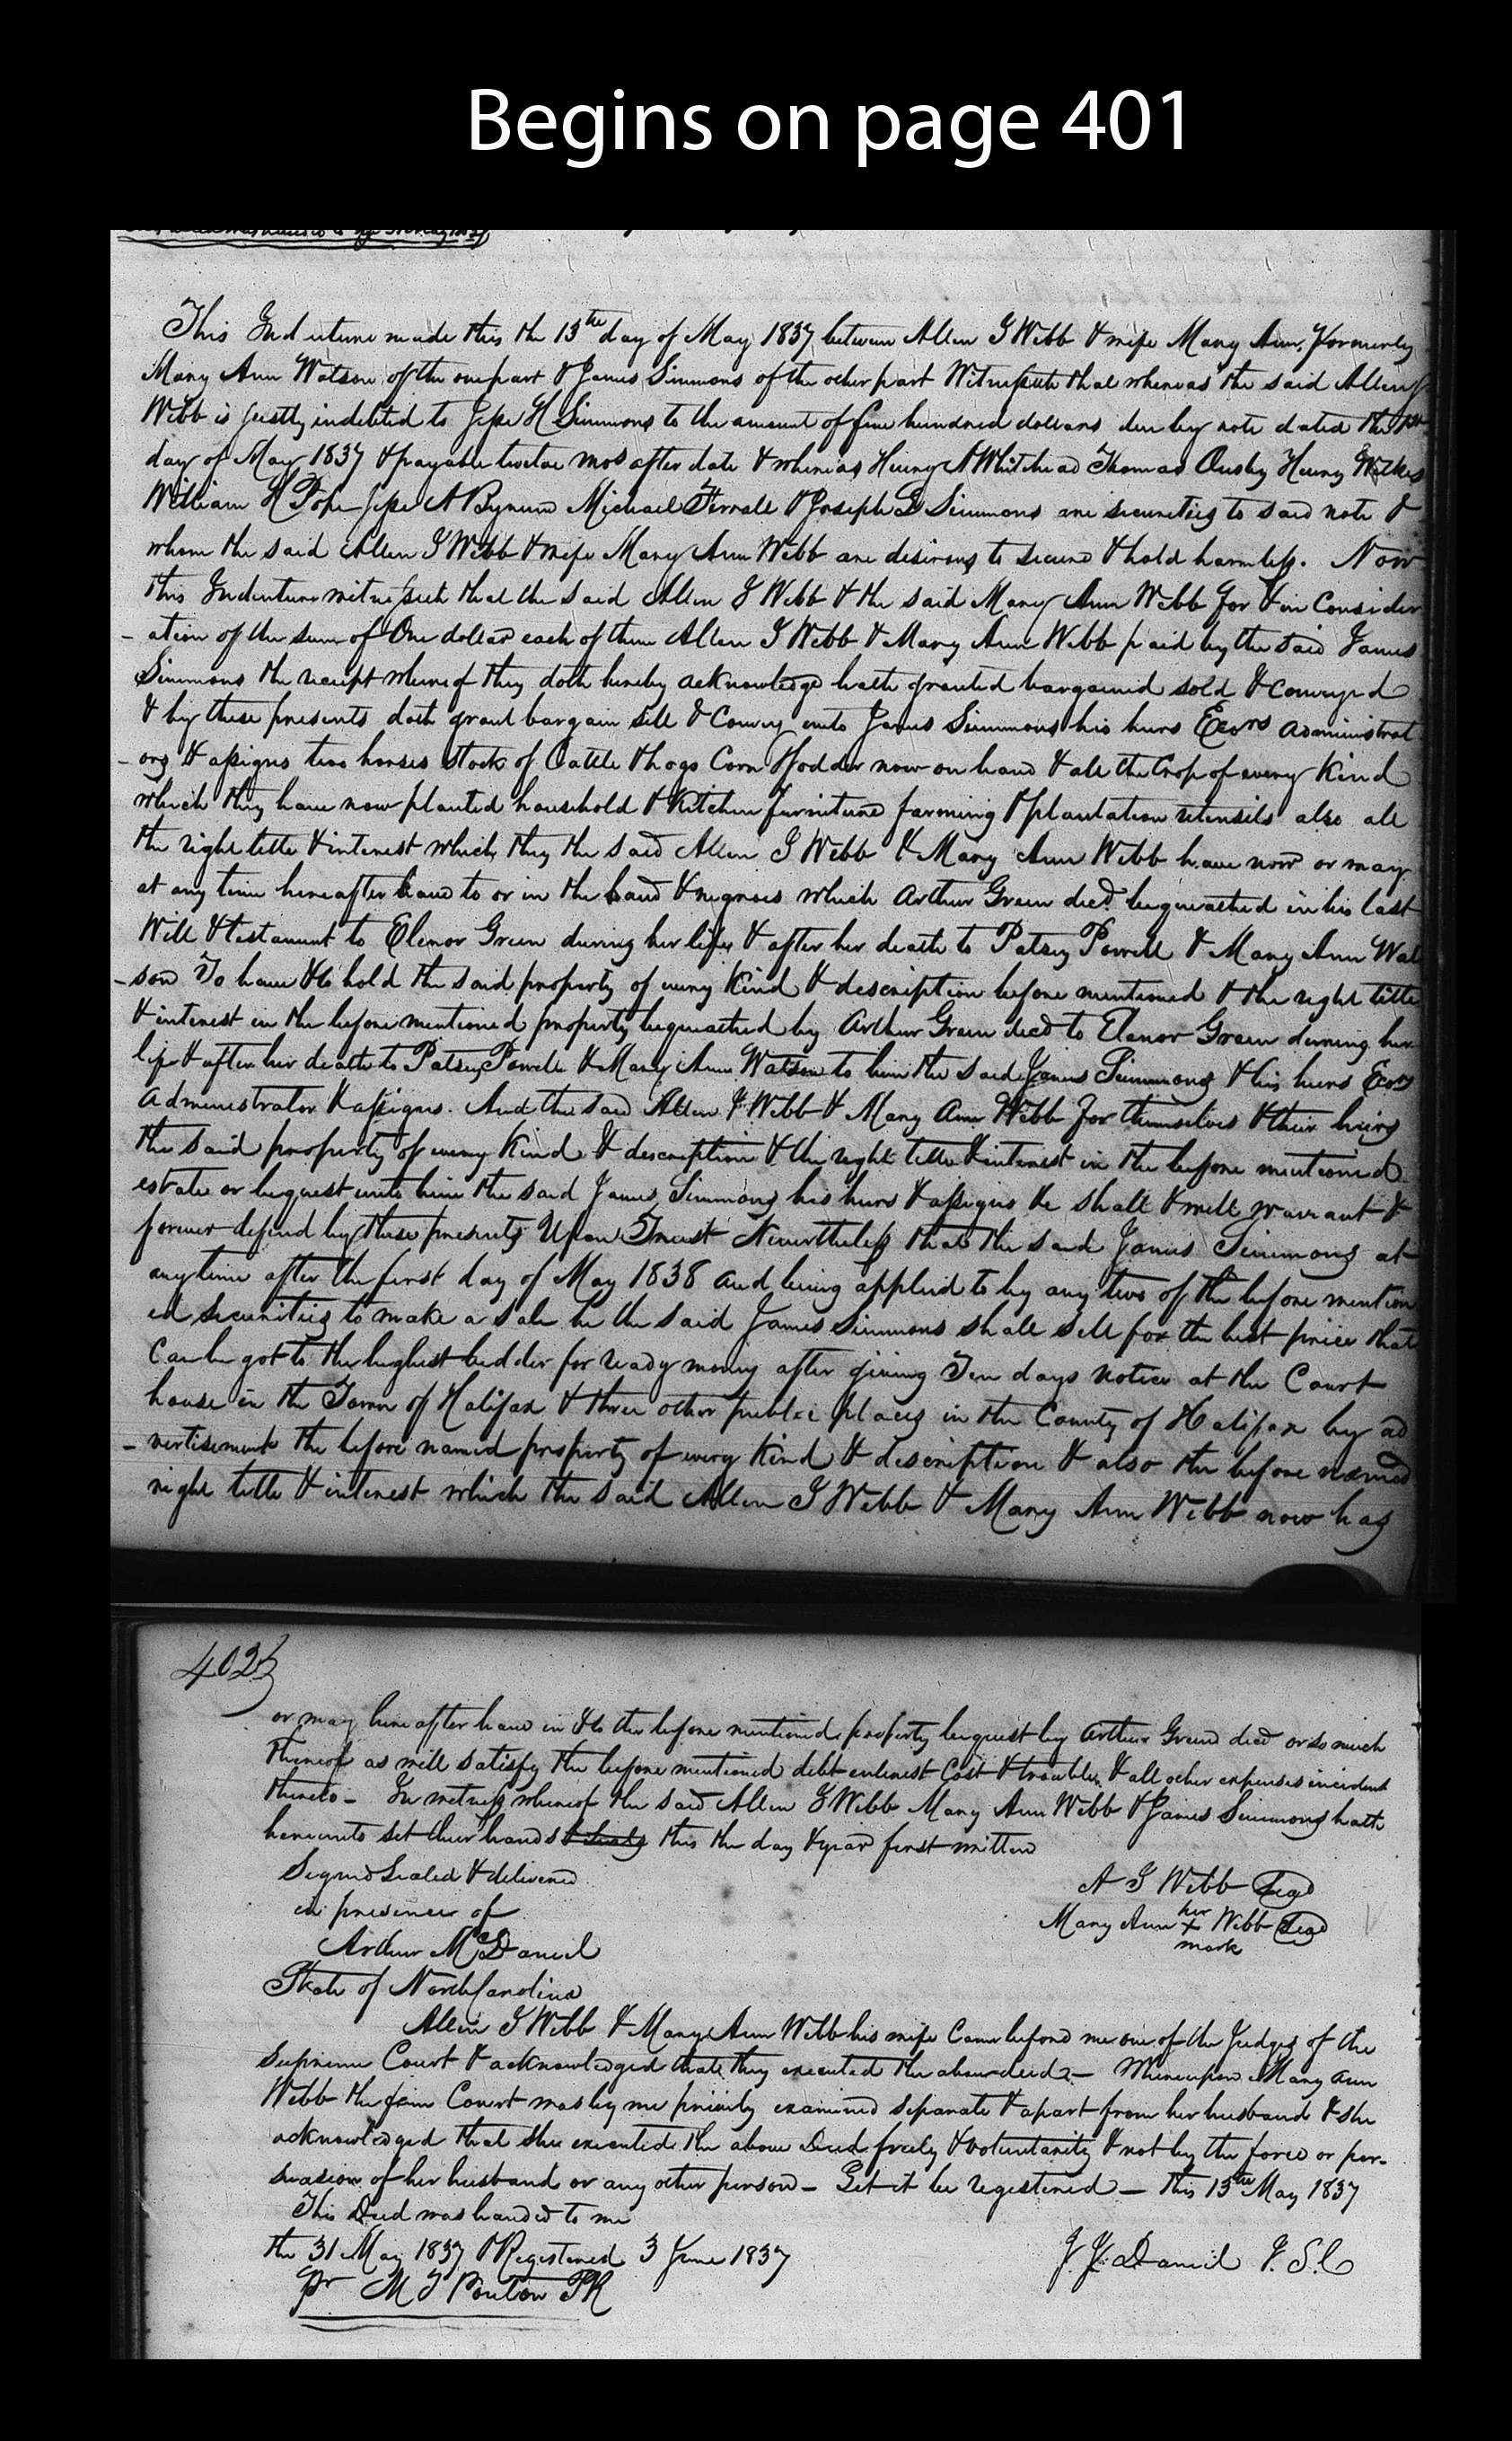 Begins on page 401
This Indenture made this the 13th day of May 1837 between Allen J Webb & wife Mary Ann, formerly
Mary Ann Watson of the one part & James Simmons of the other part Witnesseth that whereas the said Allen J
Webb is justly indebted to Jesse H Simmons to the amount of five hundred dollars due by note dated the 1st
day of May 1837 & payable twelve mos after date & whereas Henry A Whitehead Thomas Ousby Henry Wilkes
William H Pope Jesse A Bynum Michael Ferrall & Joseph L Simmons are securities to said note &
whom the said Allen J Webb & wife Mary Ann Webb are desirous to secure & hold harmless. Now
this Indenture witnesseth that the said Allen J Webb & the said Mary Ann Webb for & in Consider
- ation of the sum of One dollar each of them Allen J Webb & Mary Ann Webb paid by the said James
Simmons the receipt whereof they doth hereby acknowledge hath granted bargained sold & conveyed
& by these presents doth grant bargain sell & Convey unto James Simmons his heirs Excrs administrat
- ors & assigns two horses stock of Cattle & hogs Corn & fodder now on hand & all the Crop of every kind
which they have now planted household & Kitchen furniture farming & plantation utensils also all
the right title & interest which they the said Allen J Webb & Mary Ann Webb have now or may
at any time hereafter have to or in the land & negroes which Arthur Green decd. bequeathed in his last
Will & testament to Elenor Green during her life & after her death to Patsey Powell & Mary Ann Wat
- son To have & to hold the said property of every kind & description before mentioned & the right title
& interest in the before mentioned property bequeathed by Arthur Green decd to Elenor Green during her
life & after her death to Patsey Powell & Mary Ann Watson to him the said James Simmons & his heirs Excrs
administrator & assigns. And the said Allen J Webb & Mary Ann Webb for themselves & their heirs
the said property of every kind & description & the right title & interest in the before mentioned
estate or bequest unto him the said James Simmons his heirs & assigns he shall & will warrant &
forever defend by these presents Upon Trust Nevertheless that the said James Simmons at
anytime after the first day of May 1838 and being applied to by any two of the before mention
ed securities to make a sale he the said James Simmons shall sell for the best price that
Can be got to the highest bidder for ready money after giving Ten days notice at the Court
house in the Town of Halifax & three other public places in the County of Halifax by ad
- vertisement the before named property of every kind & description & also the before named
right title & interest which the said Allen J Webb & Mary Ann Webb now has
402
or may hereafter have in & to the before mentioned property bequest by Arthur Green decd or so much
thereof as will satisfy the before mentioned debt interest Cost & trouble & all other expenses incident
thereto - In witness whereof the said Allen J Webb Mary Ann Webb & James Simmons hath
hereunto set their hands & seals this the day & year first written
Signed Sealed & delivered
in presence of
A J Webb Seal
Mary Ann her x mark Webb Seal
Arthur McDaniel
State of North Carolina
Allen J Webb & Mary Ann Webb his wife Came before me one of the Judges of the
Supreme Court & acknowledged that they executed the above deed - Whereupon Mary Ann
Webb the feim Covert was by me privily examined separate & apart from her husband & she
acknowledged that she executed the above Deed freely & voluntarily & not by the force or per-
suasion of her husband or any other person - Let it be registered - this 13th May 1837
This Deed was handed to me
the 31 May 1837 & Registered 3 June 1837
J. J. Daniel J. S. C
Pr M T Ponton PR